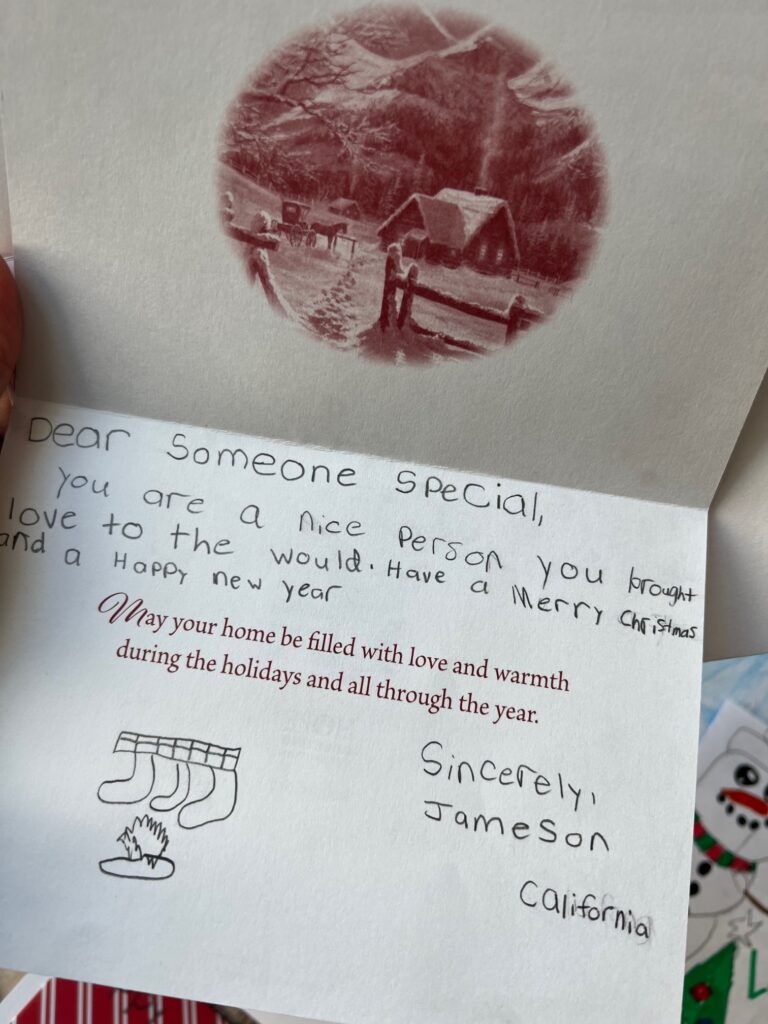 Dear Someone special,
you are a nice person you brought
love to the would. Have a Merry Christmas
and a Happy new year
May your home be filled with love and warmth
during the holidays and all through the year.
Sincerely,
Jameson
California
L